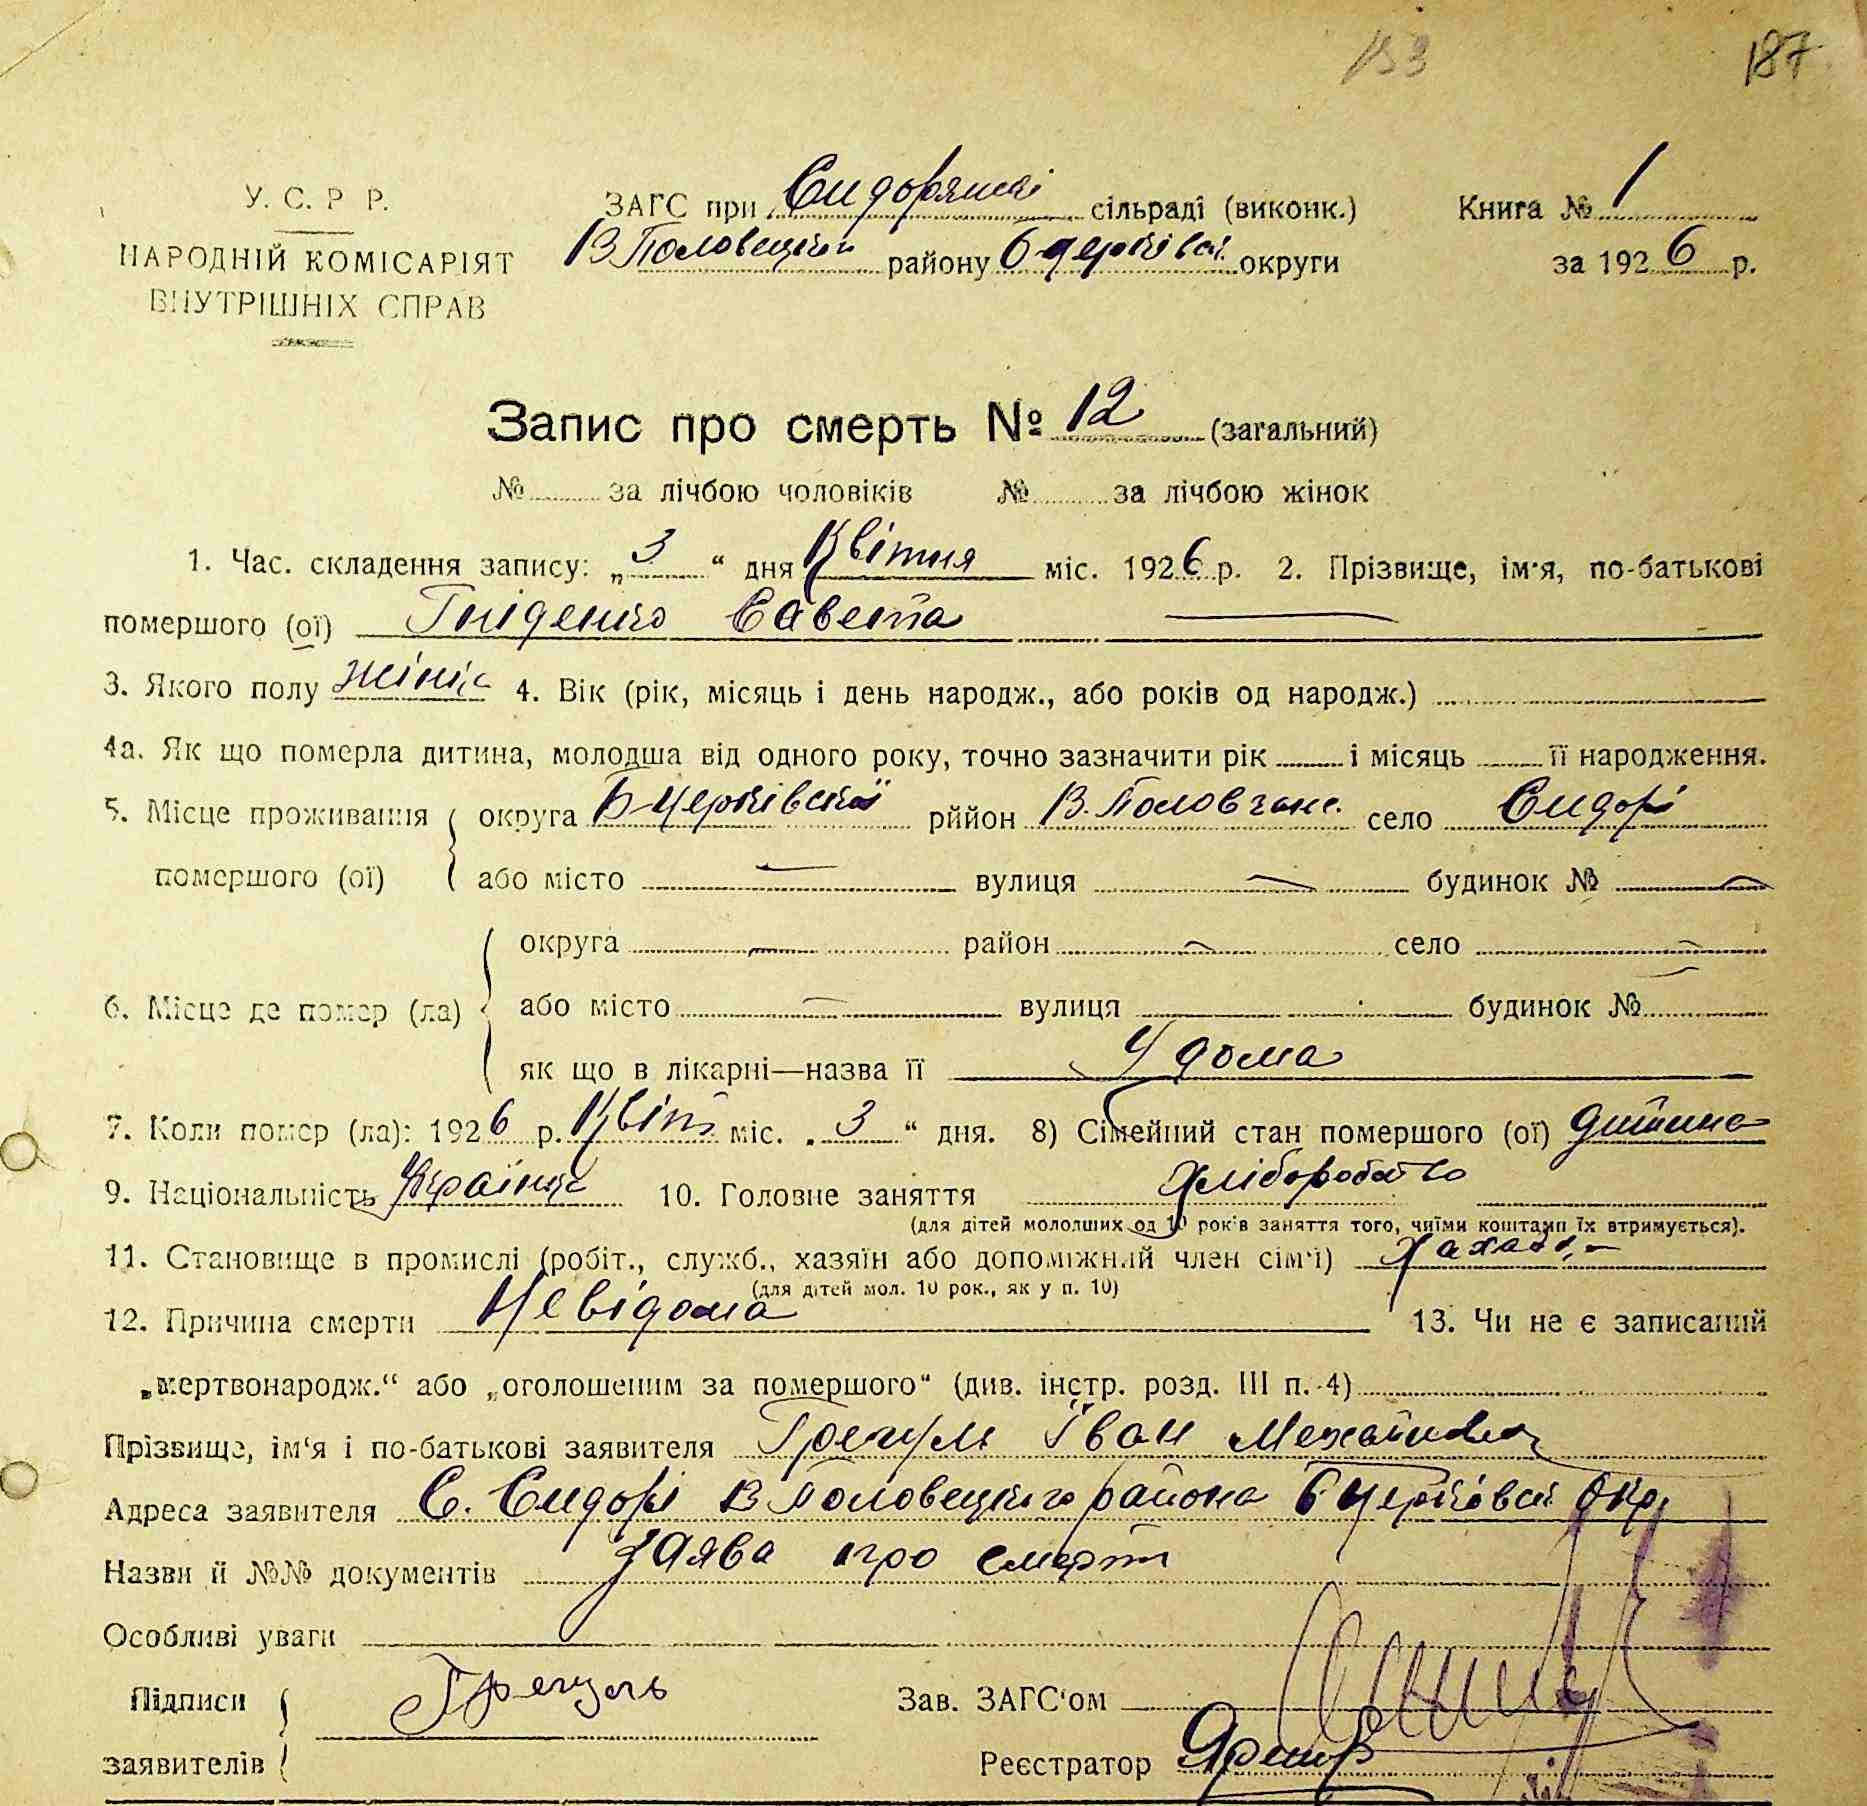 153 187
У. С. Р Р.
НАРОДНІЙ КОМІСАРІЯТ
ВНУТРІШНІХ СПРАВ
ЗАГС при Сидорянскі сільраді (виконк.)
В Половецкім району Бцерківск округи
Книга № 1
за 1926 р.
Запис про смерть № 12 (загальний)
№ за лічбою чоловіків № за лічбою жінок
1. Час. складення запису: „3“ дня Квітня міс. 1926 р. 2. Прізвище, ім‘я, по-батькові
помершого (ої) Гніденко Савета —
3. Якого полу жіноч 4. Вік (рік, місяць і день народж., або років од народж.)
4а. Як що померла дитина, молодша від одного року, точно зазначити рік і місяць її народження.
5. Місце проживання округа Бцерківскої рййон В. Половчанс. село Сидорі
помершого (ої) або місто — вулиця — будинок № —
округа — район — село —
6. Місце де помер (ла) або місто — вулиця будинок № —
як що в лікарні—назва її У дома
7. Коли помер (ла): 1926 р. Квіт міс. „3“ дня. 8) Сімейний стан помершого (ої) дитина
9. Національність Україн 10. Головне заняття хліборобство
(для дітей молодших од 10 років заняття того, чиїми коштами їх втримується).
11. Становище в промислі (робіт., служб., хазяїн або допоміжний член сім‘ї)
(для дітей мол. 10 рок., як у п. 10)
12. Причина смерти Невідома 13. Чи не є записаний
„мертвонародж.“ або „оголошеним за помершого“ (див. інстр. розд. III п. 4)
Прізвище, ім‘я і по-батькові заявителя Грегуль Іван Михайлович
Адреса заявителя С. Сидорі В Половецкого района Бцерківск Окр.
Назви й №№ документів Заява про смерть
Особливі уваги
Підписи Грегуль Зав. ЗАГС‘ом
заявителів Реєстратор